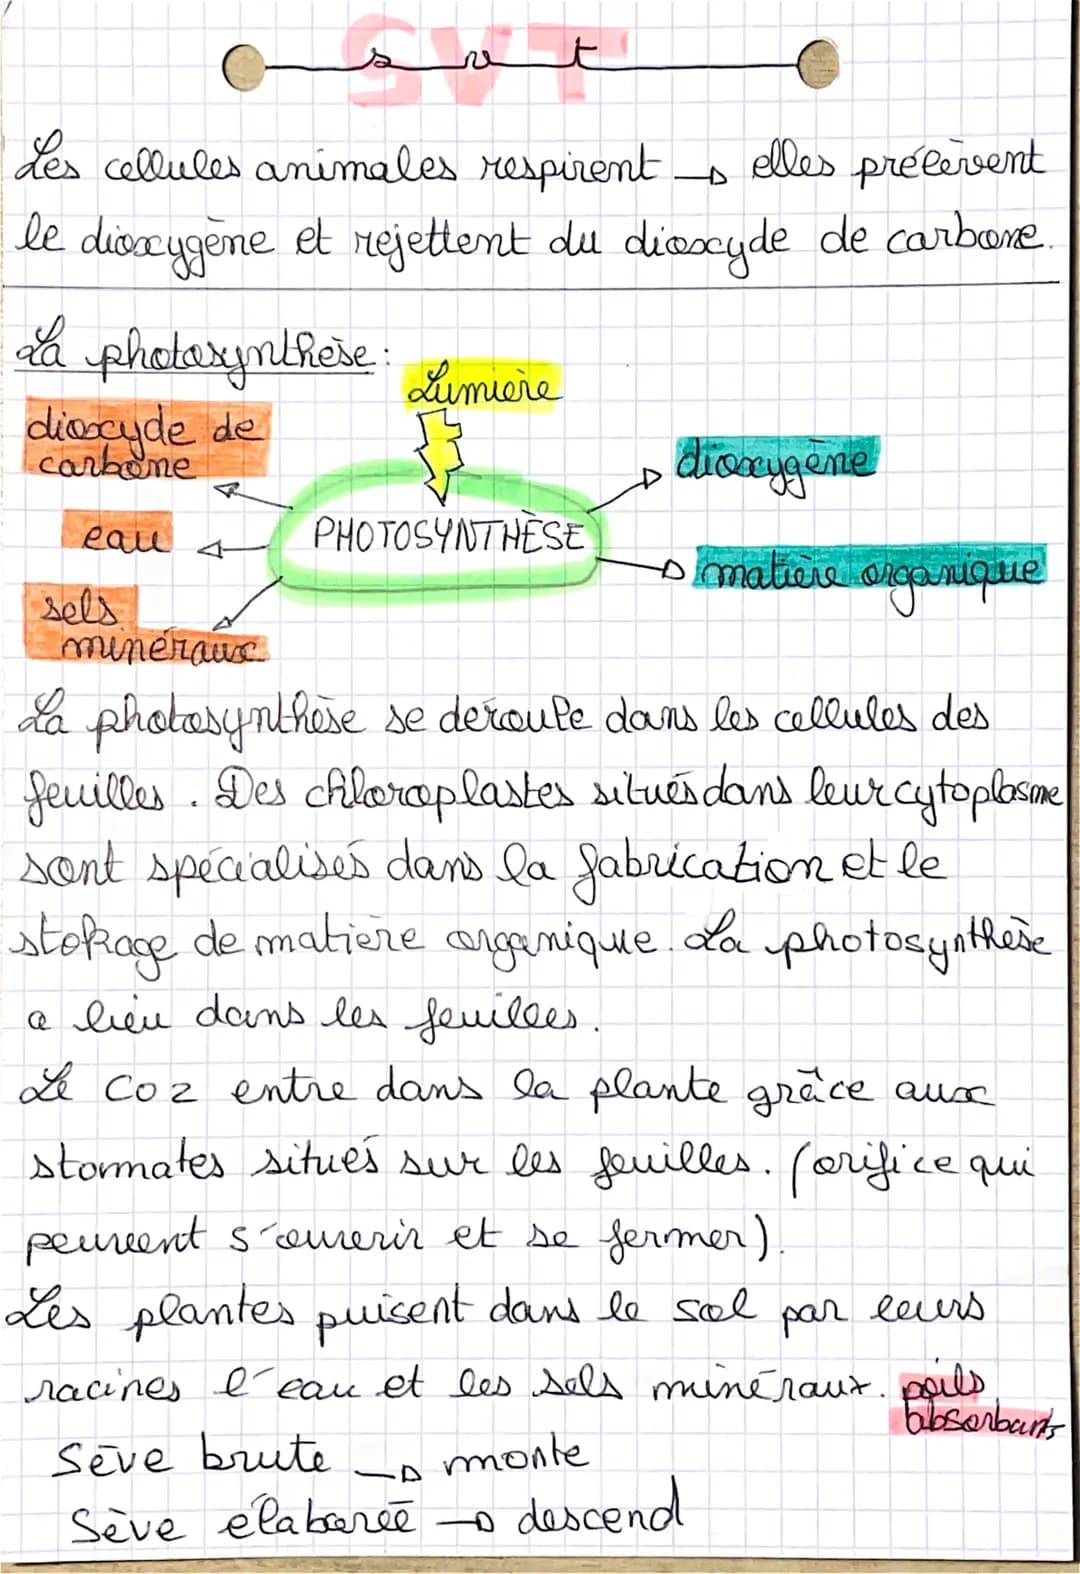 SVT
s v t
Les cellules animales respirent → elles prélèvent
le dioxygène et rejettent du dioxyde de carbone.
La photosynthèse :
Lumière
dioxyde de
carbone
dioxygène
eau
PHOTOSYNTHÈSE
matière organique
sels
minéraux
La photosynthèse se déroule dans les cellules des
feuilles. Des chloroplastes situés dans leur cytoplasme
sont spécialisés dans la fabrication et le
stokage de matière organique. La photosynthèse
a lieu dans les feuilles.
Le CO2 entre dans la plante grâce aux
stormates situés sur les feuilles. (orifice qui
peuvent s'ouvrir et se fermer).
Les plantes puisent dans le sol par leurs
racines l'eau et les sels minéraux. poils
absorbants
Sève brute → monte
Sève élaborée → descend